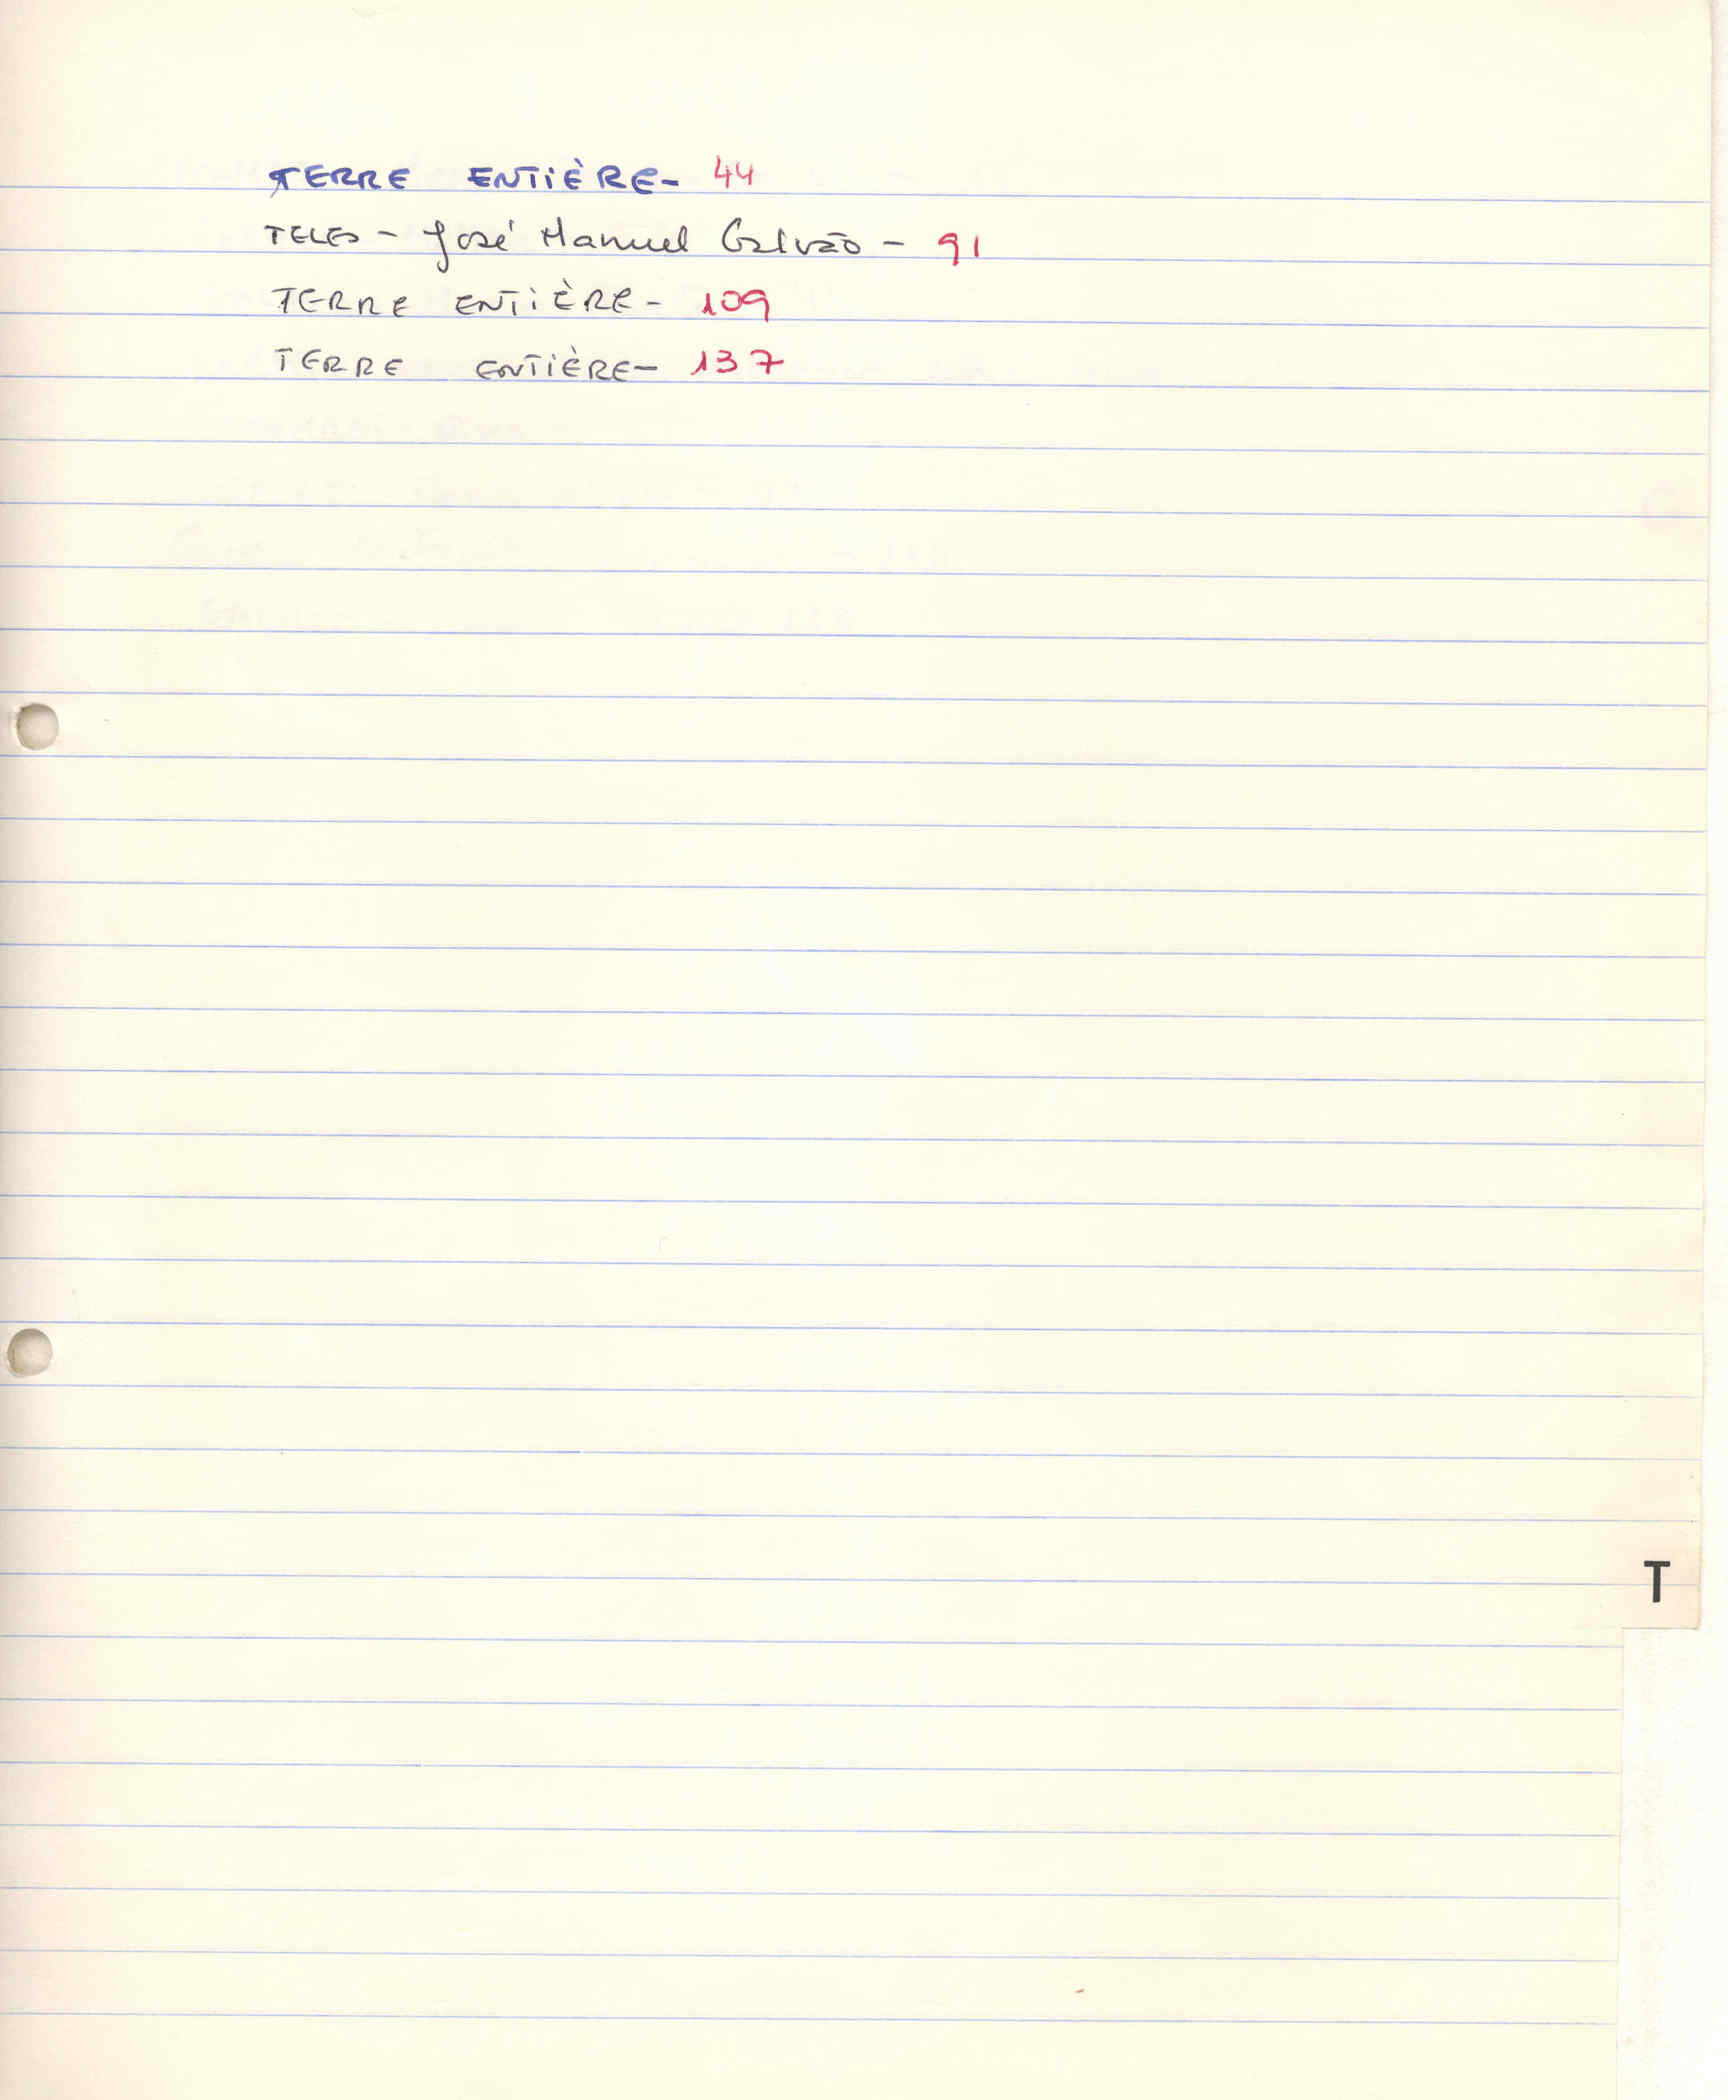 TERRE ENTIÈRE - 44
TELES - José Manuel Galvão - 91
TERRE ENTIÈRE - 109
TERRE ENTIÈRE - 137
T